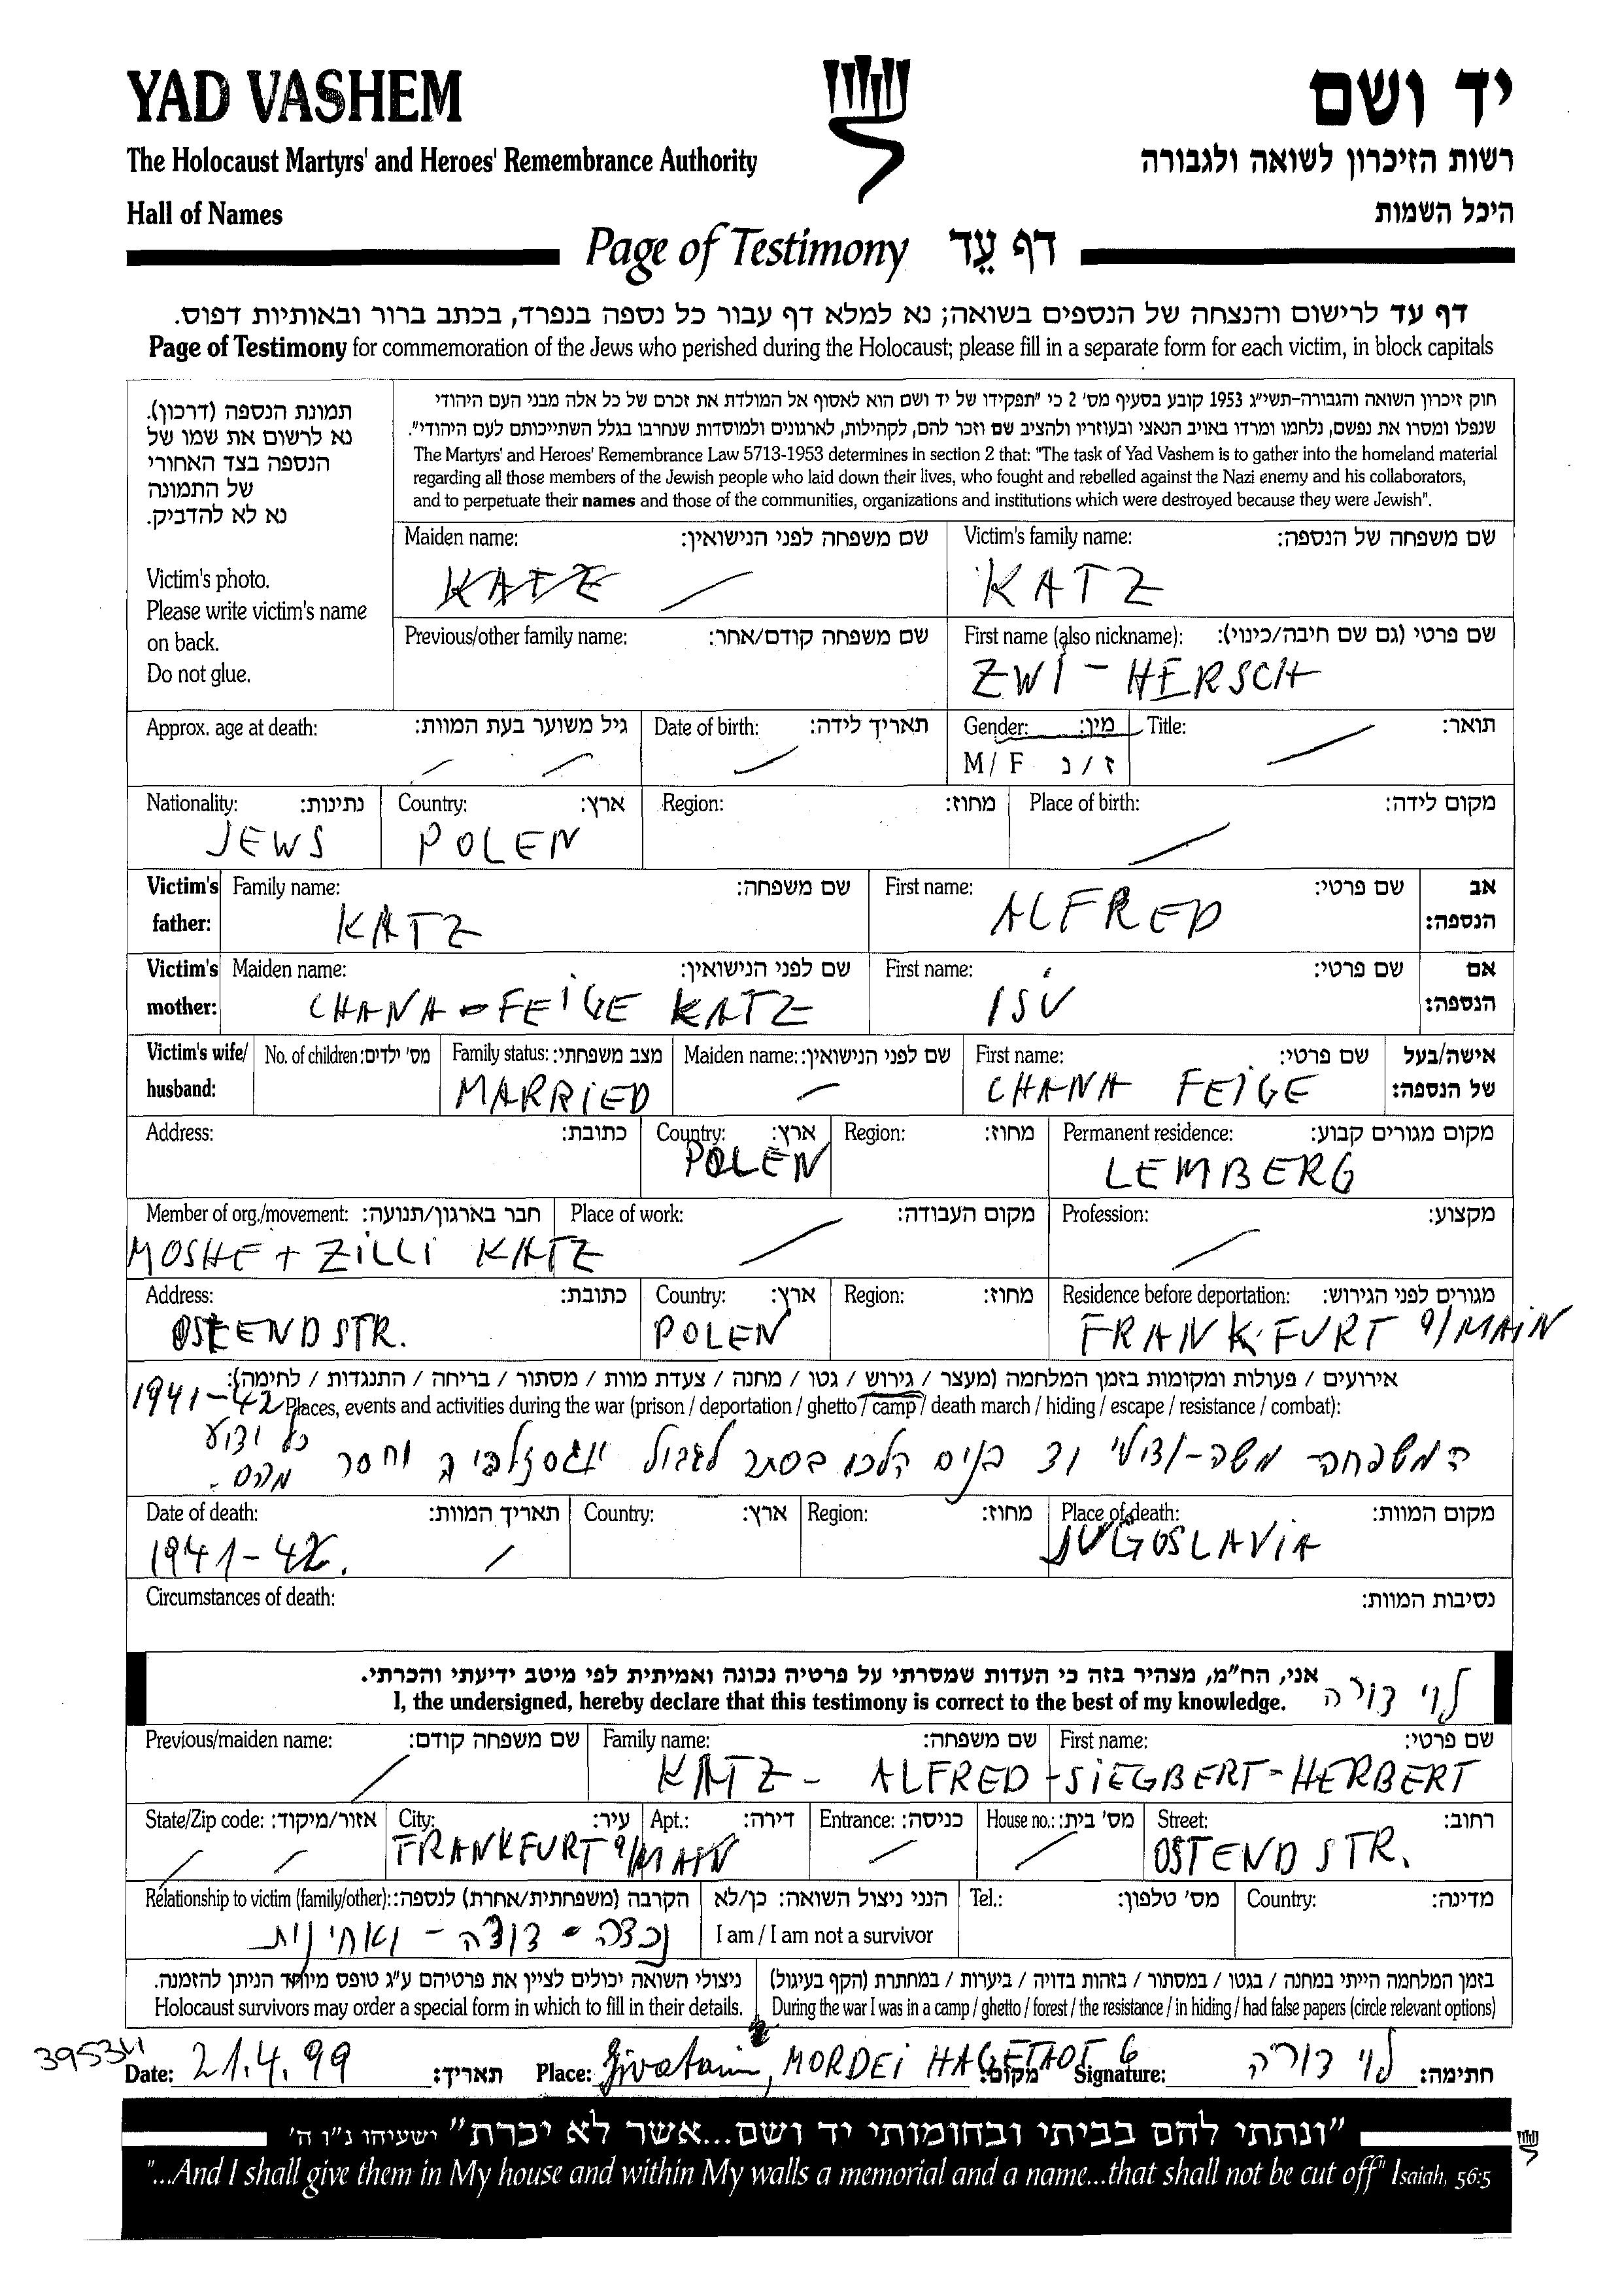 YAD VASHEM
יד ושם
The Holocaust Martyrs' and Heroes' Remembrance Authority
רשות הזיכרון לשואה ולגבורה
Hall of Names
היכל השמות
Page of Testimony דף עֵד
דף עד לרישום והנצחה של הנספים בשואה; נא למלא דף עבור כל נספה בנפרד, בכתב ברור ובאותיות דפוס.
Page of Testimony for commemoration of the Jews who perished during the Holocaust; please fill in a separate form for each victim, in block capitals
תמונת הנספה (דרכון).
נא לרשום את שמו של
הנספה בצד האחורי
של התמונה
נא לא להדביק.
Victim's photo.
Please write victim's name
on back.
Do not glue.
חוק זיכרון השואה והגבורה-תשי"ג 1953 קובע בסעיף מס' 2 כי "תפקידו של יד ושם הוא לאסוף אל המולדת את זכרם של כל אלה מבני העם היהודי
שנפלו ומסרו את נפשם, נלחמו ומרדו באויב הנאצי ובעוזריו ולהציב שם וזכר להם, לקהילות, לארגונים ולמוסדות שנחרבו בגלל השתייכותם לעם היהודי".
The Martyrs' and Heroes' Remembrance Law 5713-1953 determines in section 2 that: "The task of Yad Vashem is to gather into the homeland material
regarding all those members of the Jewish people who laid down their lives, who fought and rebelled against the Nazi enemy and his collaborators,
and to perpetuate their names and those of the communities, organizations and institutions which were destroyed because they were Jewish".
Maiden name: שם משפחה לפני הנישואין: Victim's family name: שם משפחה של הנספה:
KATZ KATZ
Previous/other family name: שם משפחה קודם/אחר: First name (also nickname): שם פרטי (גם שם חיבה/כינוי):
ZWI - HERSCH
Approx. age at death: גיל משוער בעת המוות: Date of birth: תאריך לידה: Gender: מין: Title: תואר:
M / F ז / נ
Nationality: נתינות: Country: ארץ: Region: מחוז: Place of birth: מקום לידה:
JEWS POLEN
Victim's father: Family name: שם משפחה: First name: שם פרטי: אב הנספה:
KATZ ALFRED
Victim's mother: Maiden name: שם לפני הנישואין: First name: שם פרטי: אם הנספה:
CHANA - FEIGE KATZ
Victim's wife/ husband: No. of children: מס' ילדים: Family status: מצב משפחתי: Maiden name: שם לפני הנישואין: First name: שם פרטי: אישה/בעל של הנספה:
MARRIED CHANA FEIGE
Address: כתובת: Country: ארץ: Region: מחוז: Permanent residence: מקום מגורים קבוע:
POLEN LEMBERG
Member of org./movement: חבר בארגון/תנועה: Place of work: מקום העבודה: Profession: מקצוע:
MOSHE + ZILLI KATZ
Address: כתובת: Country: ארץ: Region: מחוז: Residence before deportation: מגורים לפני הגירוש:
OSTENDSTR. POLEN FRANKFURT a/MAIN
אירועים / פעולות ומקומות בזמן המלחמה (מעצר / גירוש / גטו / מחנה / צעדת מוות / מסתור / בריחה / התנגדות / לחימה):
1941-42 Places, events and activities during the war (prison / deportation / ghetto / camp / death march / hiding / escape / resistance / combat):
המשפחה משה - בנים הלכו בסתר לגבול וחסר כל ידוע
מהם.
Date of death: תאריך המוות: Country: ארץ: Region: מחוז: Place of death: מקום המוות:
1941-42. JUGOSLAVIA
Circumstances of death: נסיבות המוות:
אני, הח"מ, מצהיר בזה כי העדות שמסרתי על פרטיה נכונה ואמיתית לפי מיטב ידיעתי והכרתי.
I, the undersigned, hereby declare that this testimony is correct to the best of my knowledge. לוי דורה
Previous/maiden name: שם משפחה קודם: Family name: שם משפחה: First name: שם פרטי:
KATZ - ALFRED - SIEGBERT - HERBERT
State/Zip code: אזור/מיקוד: City: עיר: Apt.: דירה: Entrance: כניסה: House no.: מס' בית: Street: רחוב:
FRANKFURT a/MAIN OSTENDSTR.
Relationship to victim (family/other): הקרבה (משפחתית/אחרת) לנספה: הנני ניצול השואה: כן/לא Tel.: מס' טלפון: Country: מדינה:
נכדה - דודה - ואחינית I am / I am not a survivor
ניצולי השואה יכולים לציין את פרטיהם ע"ג טופס מיוחד הניתן להזמנה. בזמן המלחמה הייתי במחנה / בגטו / במסתור / בזהות בדויה / ביערות / במחתרת (הקף בעיגול)
Holocaust survivors may order a special form in which to fill in their details. During the war I was in a camp / ghetto / forest / the resistance / in hiding / had false papers (circle relevant options)
Date: 21.4.99 תאריך: Place: Givataim, MORDEI HAGETAOT 6 מקום: Signature: לוי דורה חתימה:
"ונתתי להם בביתי ובחומותי יד ושם...אשר לא יכרת" ישעיהו נ"ו ה'
"...And I shall give them in My house and within My walls a memorial and a name...that shall not be cut off" Isaiah, 56:5